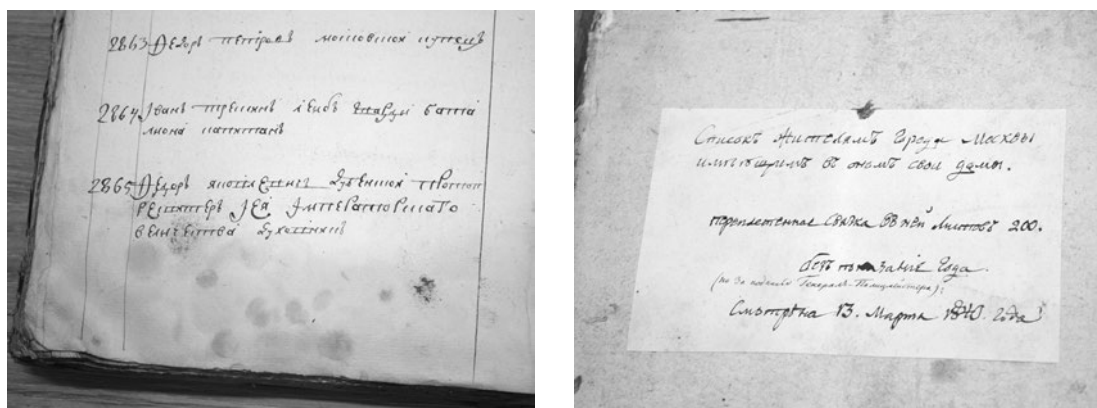 2863 Ѳедоръ петровъ московской купецъ
2864 Iванъ лейбъ гвардіи бата
лиона капитанъ
2865 Ѳедоръ дубенской протоп
ресвитеръ Ея Императорскаго
величества духовникъ
Списокъ жителямъ Города Москвы
имѣющимъ въ ономъ свои домы.
переплетенная Связка въ ней листовъ 200.
безъ показанія Года.
(но за подписью Генералъ-Полицмейстера);
Смотрѣна 13. Марта Года